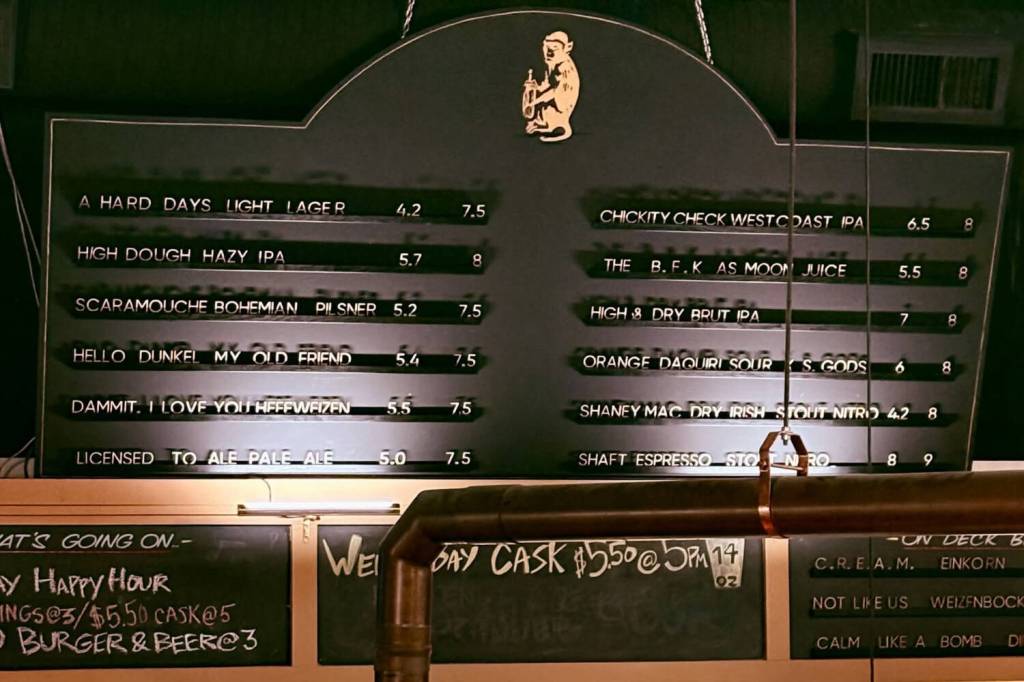 A HARD DAYS LIGHT LAGER 4.2 7.5
HIGH DOUGH HAZY IPA 5.7 8
SCARAMOUCHE BOHEMIAN PILSNER 5.2 7.5
HELLO DUNKEL MY OLD FRIEND 5.4 7.5
DAMMIT. I LOVE YOU HEFEWEIZEN 5.5 7.5
LICENSED TO ALE PALE ALE 5.0 7.5
CHICKITY CHECK WEST COAST IPA 6.5 8
THE B.F.K AS MOON JUICE 5.5 8
HIGH & DRY BRUT IPA 7 8
ORANGE DAQUIRI SOUR X S. GODS 6 8
SHANEY MAC DRY IRISH STOUT NITRO 4.2 8
SHAFT ESPRESSO STOUT NITRO 8 9
AT'S GOING ON..-
AY HAPPY HOUR
INGS@3/$5.50 CASK@5
BURGER & BEER@3
WE DAY CASK $5.50@5PM 14 OZ
-ON DECK B
C.R.E.A.M. EINKORN
NOT LIKE US WEIZENBOCK
CALM LIKE A BOMB DI